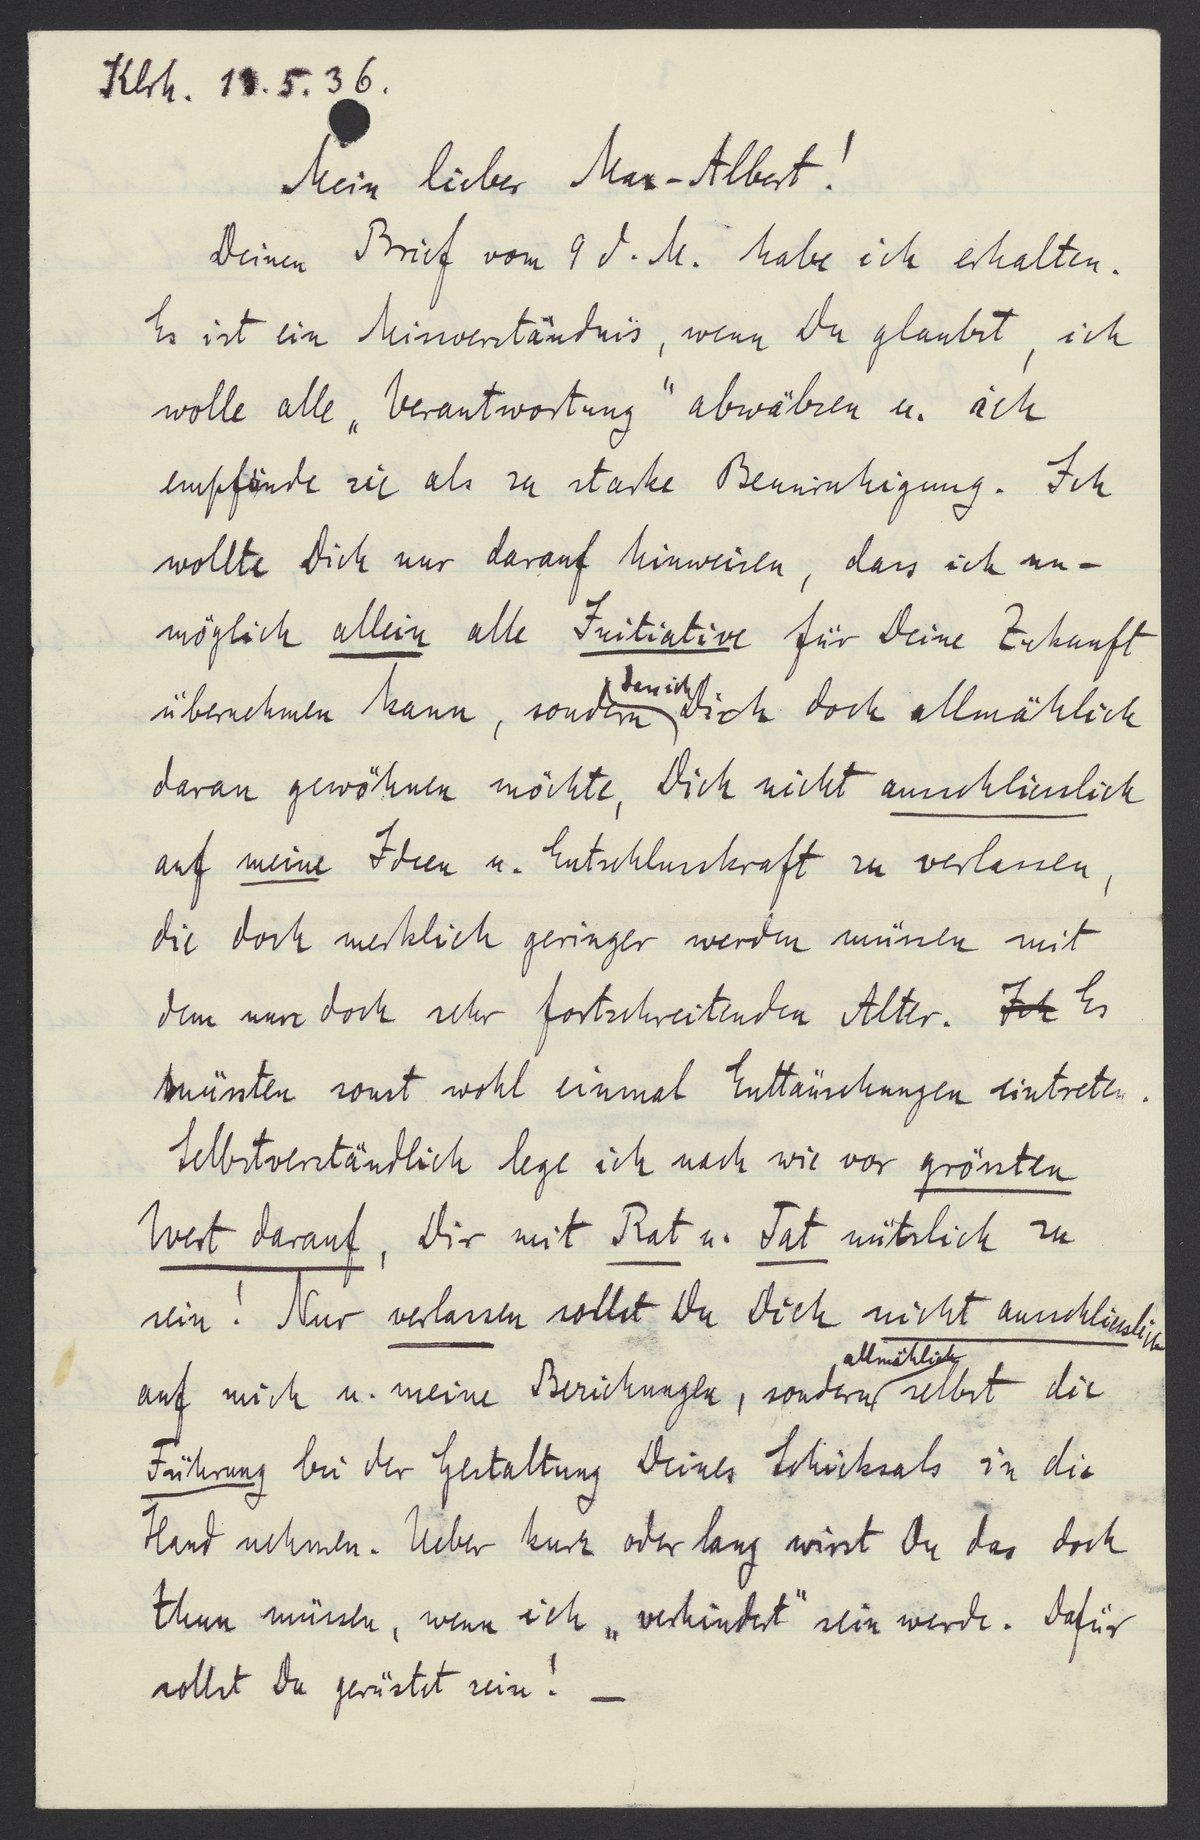 Klrh. 11.5.36.
Mein lieber Max-Albert!
Deinen Brief vom 9 d. M. habe ich erhalten.
Es ist ein Missverständnis, wenn Du glaubst, ich
wolle alle „Verantwortung" abwälzen u. ich
empfände sie als zu starke Beunruhigung. Ich
wollte Dich nur darauf hinweisen, dass ich un-
möglich allein alle Initiative für Deine Zukunft
übernehmen kann, sondern dass ich Dich doch allmählich
daran gewöhnen möchte, Dich nicht ausschliesslich
auf meine Ideen u. Entschlusskraft zu verlassen,
die doch merklich geringer werden müssen mit
dem nun doch sehr fortschreitenden Alter. Ich Es
müssten sonst wohl einmal Enttäuschungen eintreten.
Selbstverständlich lege ich nach wie vor grössten
Wert darauf, Dir mit Rat u. Tat nützlich zu
sein! Nur verlassen sollst Du Dich nicht ausschliesslich
auf mich u. meine Beziehungen, sondern allmählich selbst die
Führung bei der Gestaltung Deines Schicksals in die
Hand nehmen. Ueber kurz oder lang wirst Du das doch
thun müssen, wenn ich „verhindert" sein werde. Dafür
sollst Du gerüstet sein! —